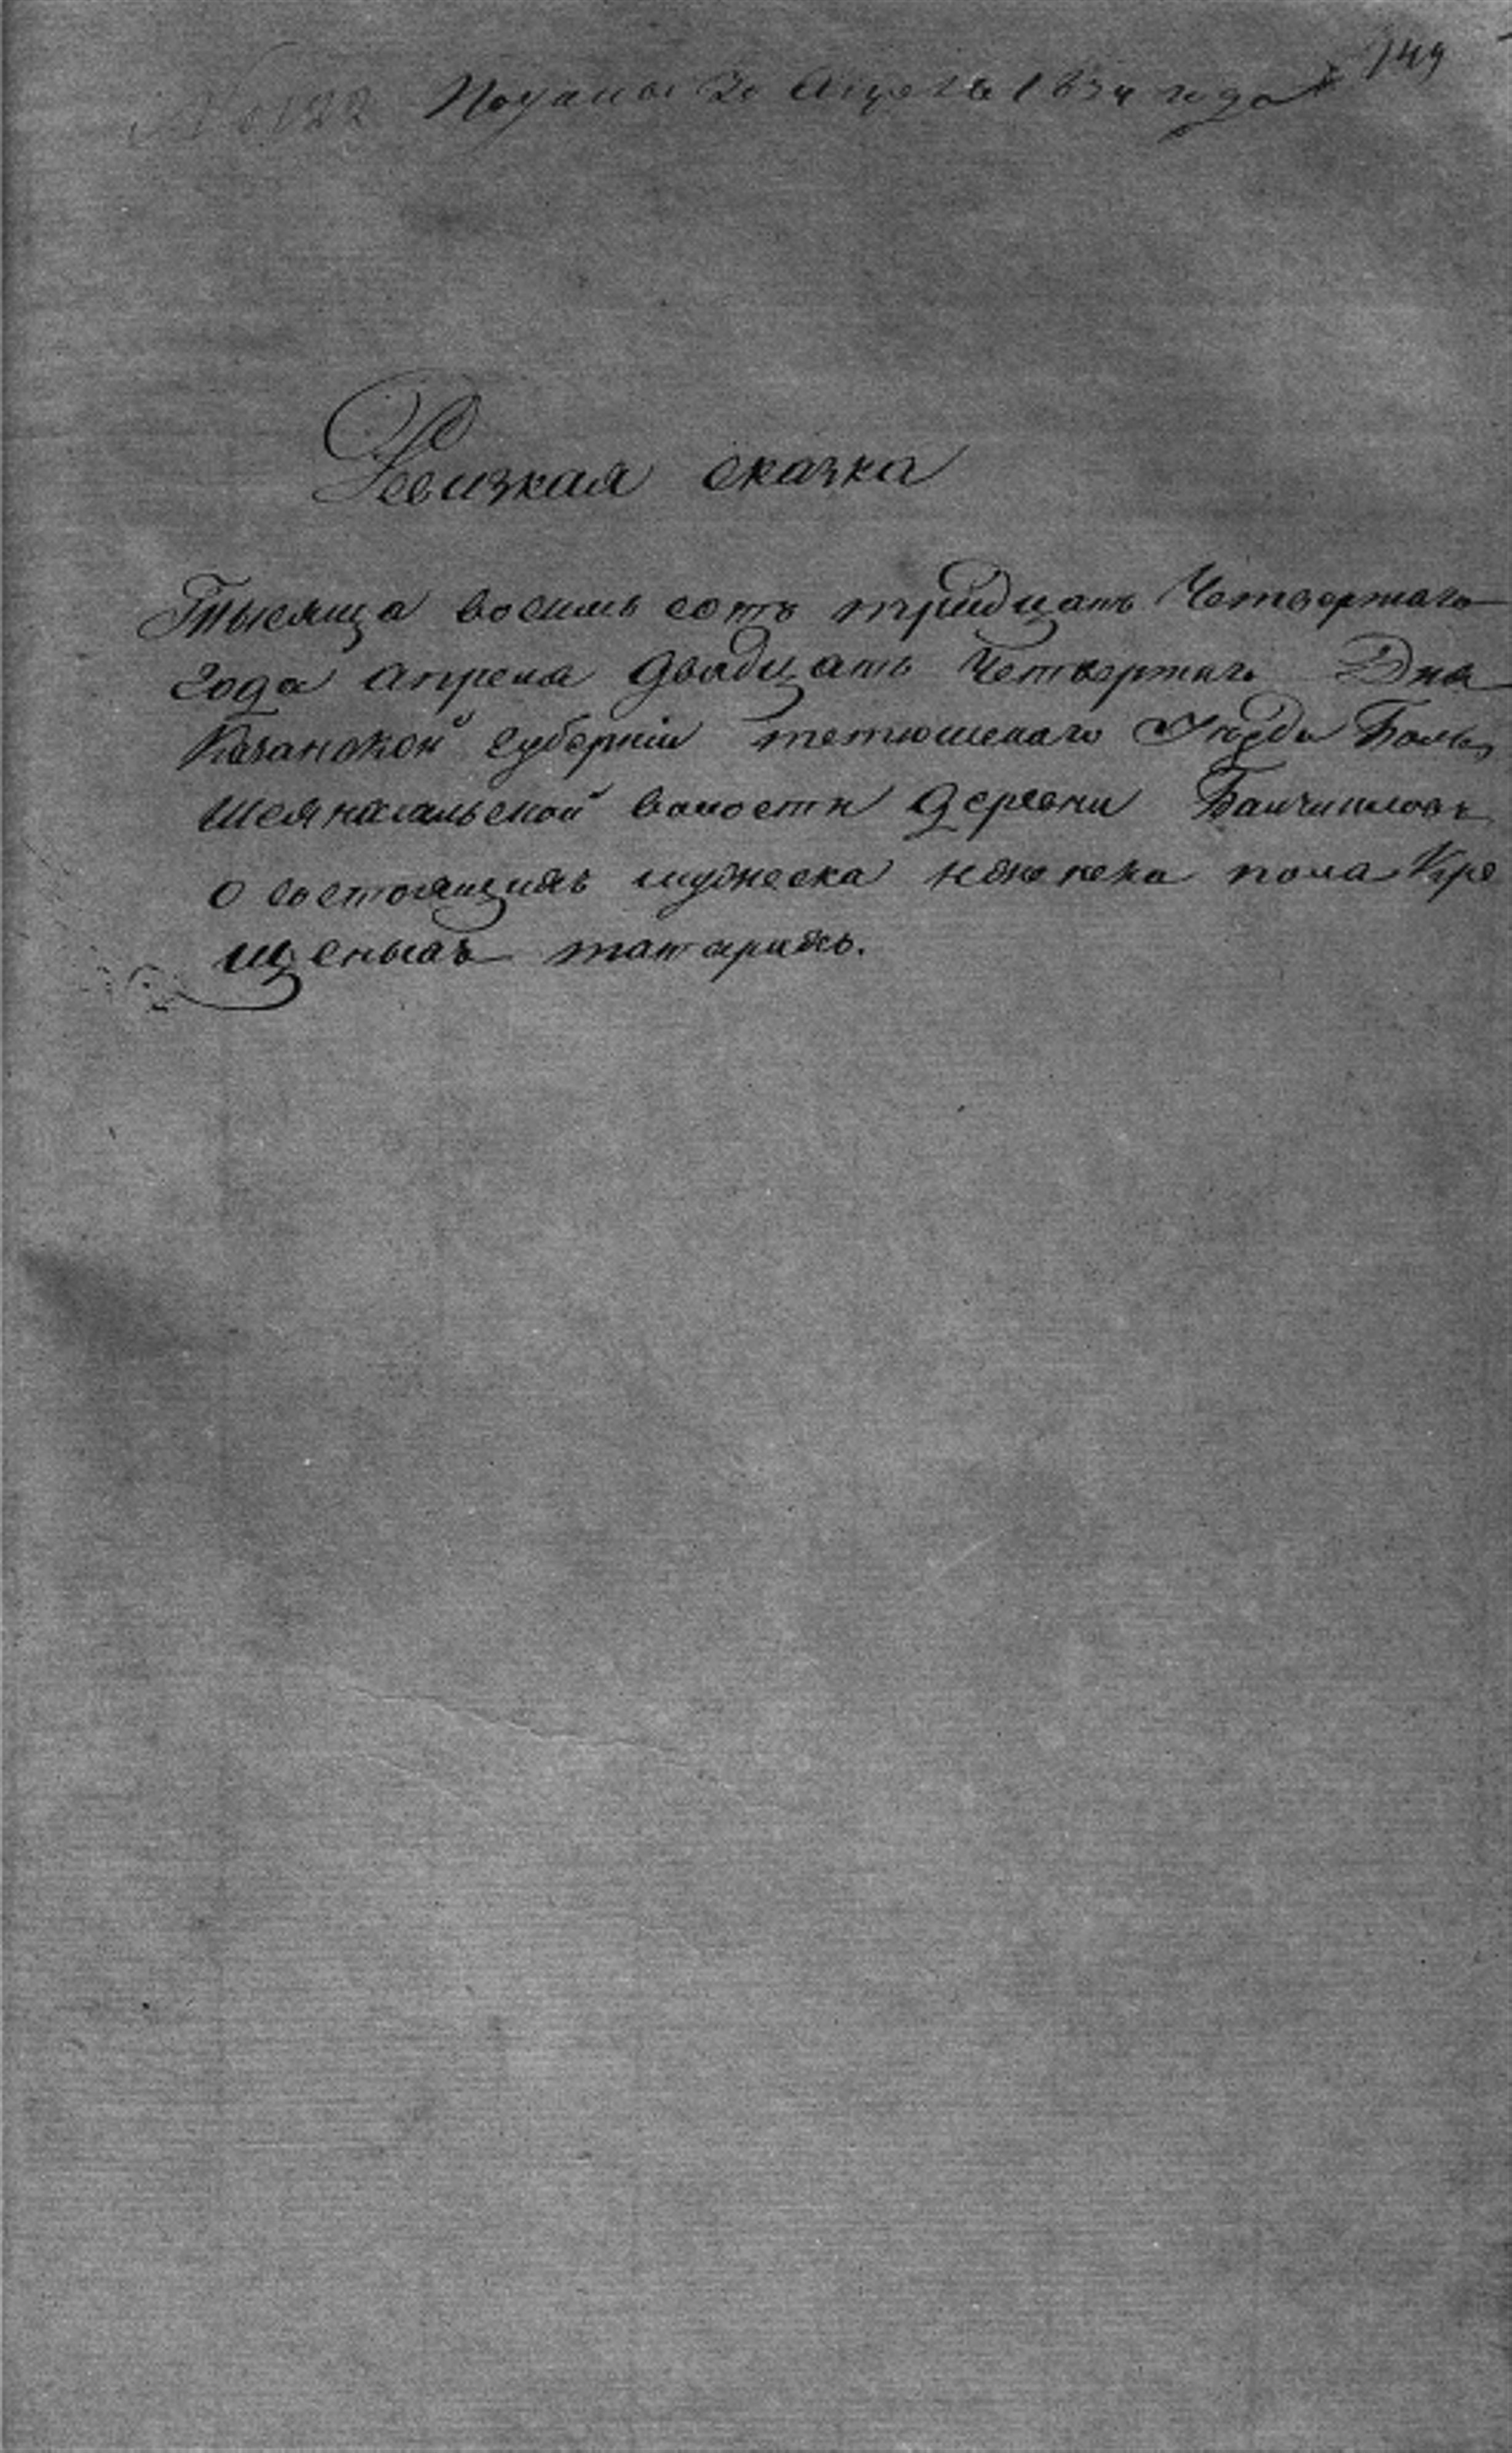 № 122 Поданы 2. Апреля 1834 года 149
Ревизкая сказка
Тысяща восимь сотъ тридцать Четвертаго
года апреля двадцать Четвертаго Дня
Казанской губернiи тетюшскаго Уезда Боль
шеянасальской волости деревни
о состоящихъ мужеска иженска пола Кре
щеныхъ татаринъ.